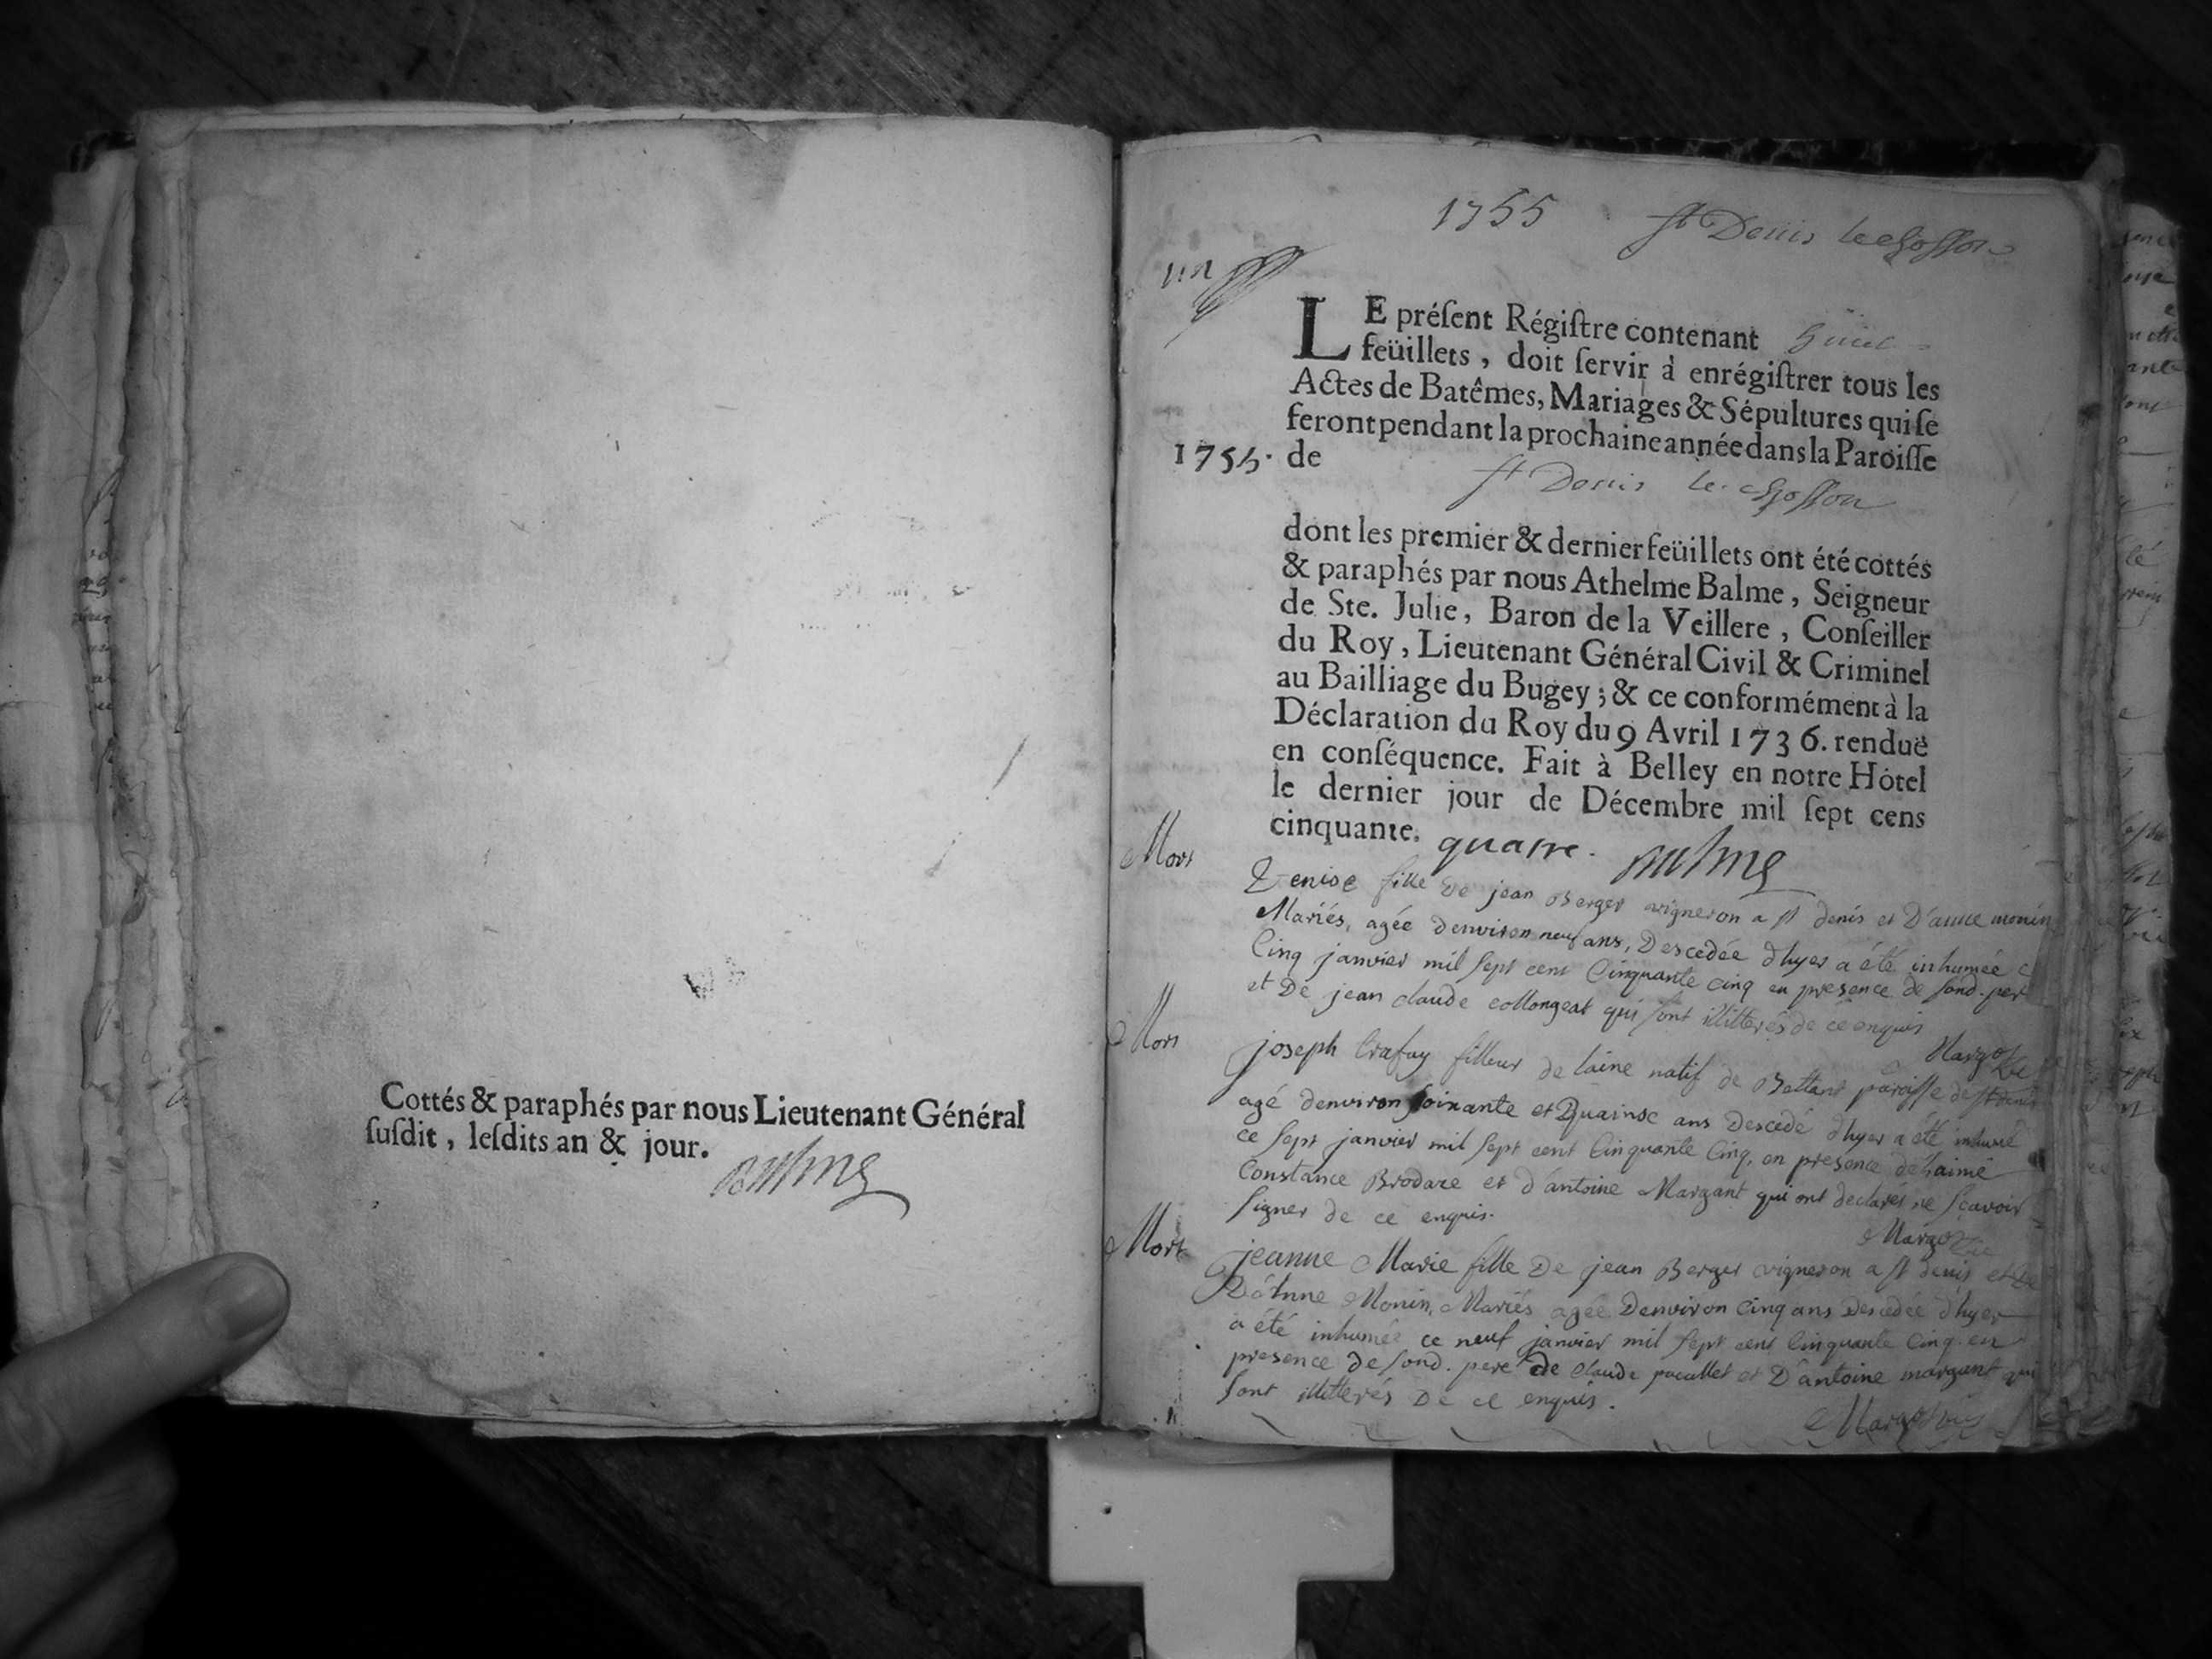 Cottés & paraphés par nous Lieutenant Général
susdit, lesdits an & jour.
Balme
1755 st Denis le chosson
un
LE présent Régistre contenant huict
feüillets, doit servir à enrégistrer tous les
Actes de Batêmes, Mariages & Sépultures qui se
feront pendant la prochaine année dans la Paroisse
1755. de
st Denis le chosson
dont les premier & dernier feüillets ont été cottés
& paraphés par nous Athelme Balme, Seigneur
de Ste. Julie, Baron de la Veillere, Conseiller
du Roy, Lieutenant Général Civil & Criminel
au Bailliage du Bugey; & ce conformément à la
Déclaration du Roy du 9 Avril 1736. renduë
en conséquence. Fait à Belley en notre Hôtel
le dernier jour de Décembre mil sept cens
cinquante. quatre. Balme
Mort
Denise fille de jean Berger vigneron a st denis et D'anne monin
Mariés, agée denviron neuf ans, Descedée d'hyer a été inhumée
Cinq janvier mil sept cent Cinquante cinq en presence de sond. per
et De jean claude collongeat qui sont illitterés de ce enquis
Margot
Mort
joseph filleur de laine natif de Bettant paroisse de st denis
agé denviron soixante et Quainse ans Descedé d'hyer a été inhumé
ce sept janvier mil sept cent Cinquante Cinq, en presence de
Constance Brodare et d'antoine Margant qui ont declarés ne sçavoir
signer de ce enquis.
Margot
Mort
jeanne Marie fille De jean Berger vigneron a st denis et De
D'Anne Monin, Mariés agée Denviron Cinq ans Descedée d'hyer
a été inhumée ce neuf janvier mil sept cent Cinquante Cinq en
presence de sond. pere de Claude pacallet et D'antoine margant qui
sont illitterés De ce enquis.
Margot